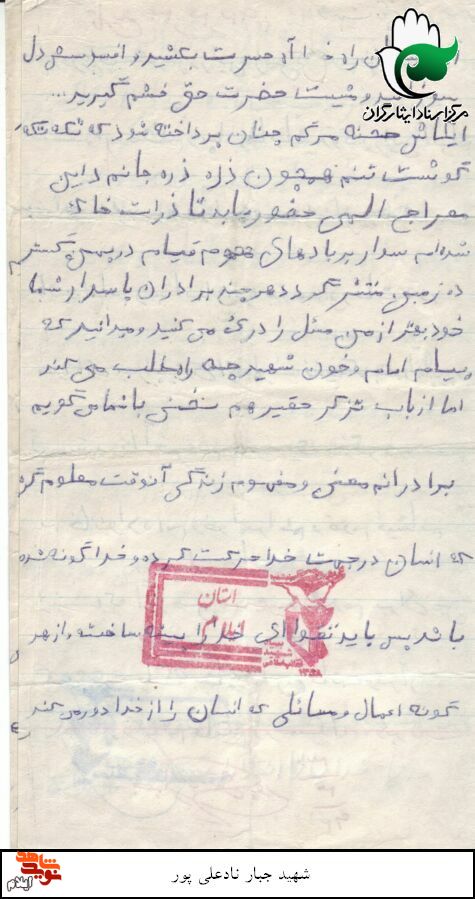 مرکز اسناد ایثارگران
راه آه حسرت بکشید و افسوس دل
مشیت حضرت حق خشم گیرید...
صحنه مرگم چنان پرداخته شود که تکه تکه
گوشت تنم همچون ذره ذره جانم در این
معراج الهی حضور یابد تا ذرات خاک
شده‌ام سوار بر بادهای قیام در پهن
زمین منتشر گردد هر چند برادران پاسدار شما
خود بهتر از من مسئله را درک می کنید و میدانید که
پیام امام و خون شهید چه را طلب می کند
اما از باب تذکر حقیر هم سخنی باشما می گویم
برادرانم معنی و مفهوم زندگی آنوقت معلوم
که انسان در جهت خدا حرکت کرده و خدا گونه شده
باشد پس باید تقوای خدا را پیشه ساخته و از هر
گونه اعمال و مسائلی که انسان را از خدا دور می کند
استان
ایلام
نوید شاهد
ایلام
شهید جبار نادعلی پور